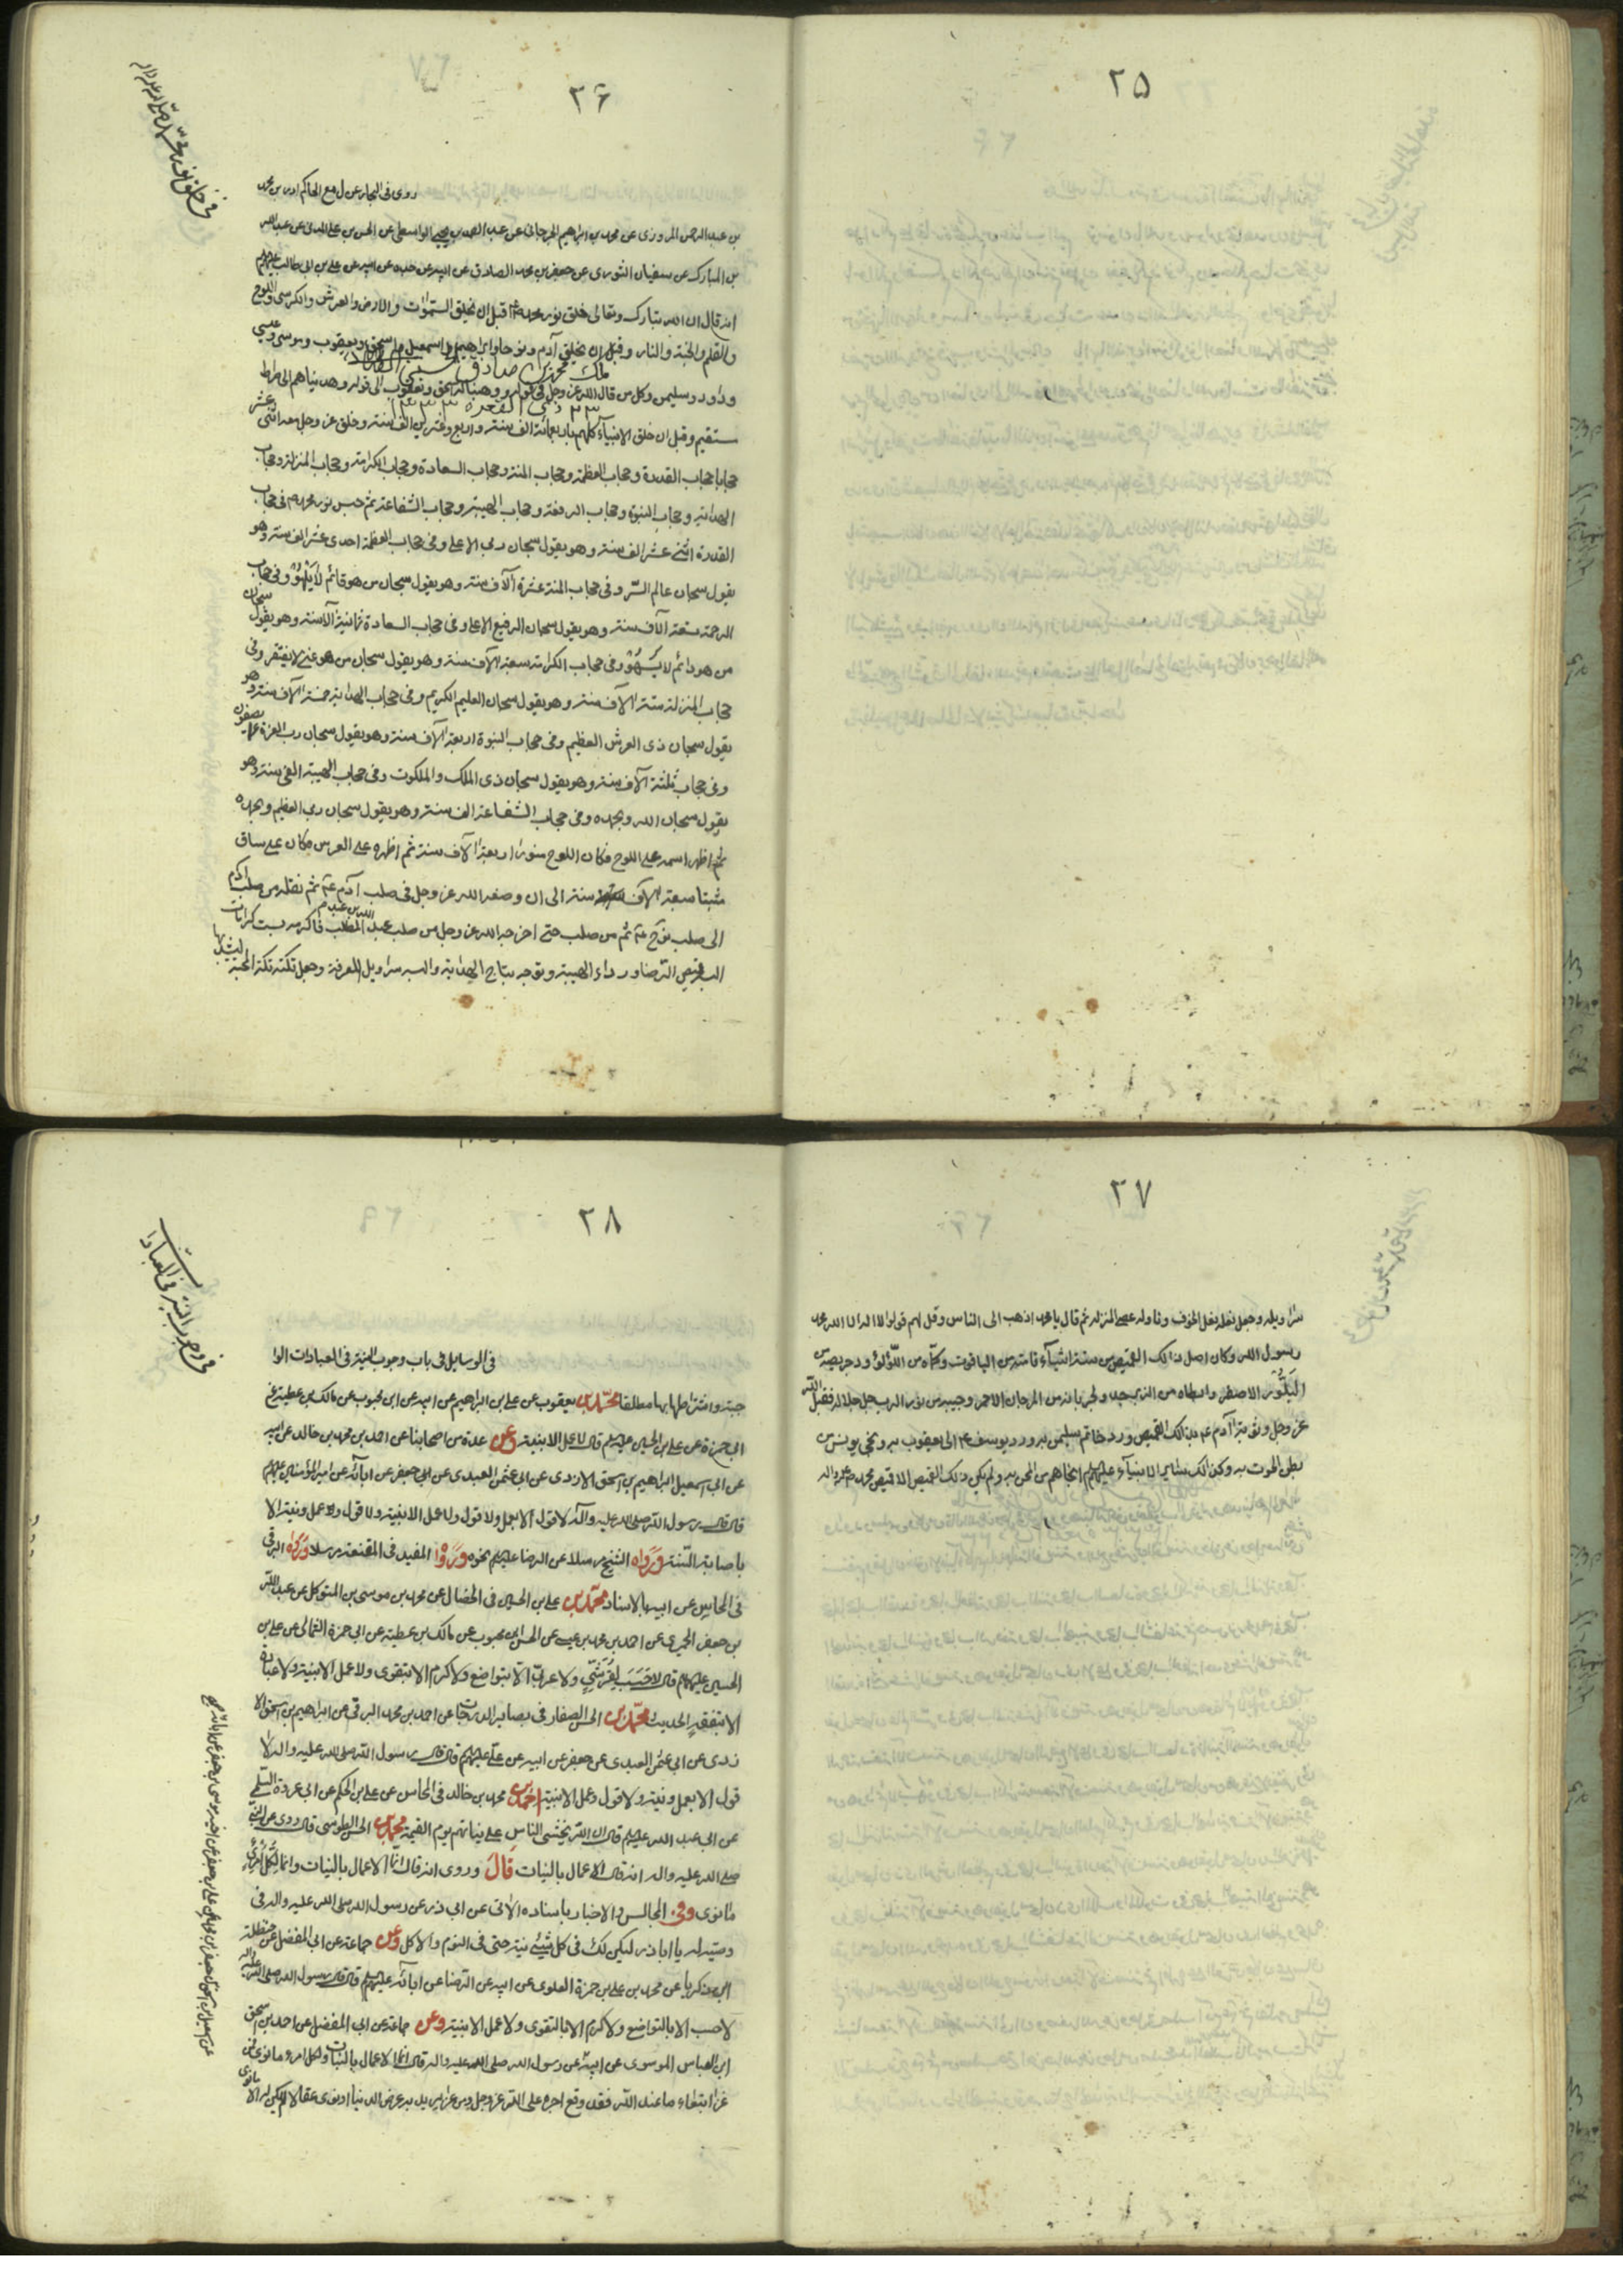 ٢٥
٢۶
روى فى البحار عن ل مع الحاكم احمد بن محمد
بن عبد الرحمن المروزى عن محمد بن ابراهيم الجرجانى عن عبد الصمد بن يحيى الواسطى عن الحسن بن على المدنى عن عبد الله
بن المبارك عن سفيان الثورى عن جعفر بن محمد الصادق عن ابيه عن جده عن ابيه عن على بن ابى طالب عليهم
انه قال ان الله تبارك وتعالى خلق نور محمد ص قبل ان يخلق السموات والارض والعرش والكرسى واللوح
والقلم والجنة والنار وقبل ان يخلق آدم ونوحا وابراهيم واسمعيل واسحق ويعقوب وموسى وعيسى
وداود وسليمن وكل من قال الله عز وجل فى قوله ووهبنا له اسحق ويعقوب الى قوله وهديناهم الى صراط
مستقيم وقبل ان خلق الانبيآء كلهم باربعمائة الف سنة واربع وعشرين الف سنة وخلق عز وجل معه اثنى عشر
حجابا حجاب القدرة وحجاب العظمة وحجاب المنة وحجاب السعادة وحجاب الكرامة وحجاب المنزلة وحجاب
الهداية وحجاب النبوة وحجاب الرفعة وحجاب الهيبة وحجاب الشفاعة ثم حبس نور محمد ص فى حجاب
القدرة اثنى عشر الف سنة وهو يقول سبحان ربى الاعلى وفى حجاب العظمة احدى عشر الف سنة وهو
يقول سبحان عالم السّر وفى حجاب المنة عشرة آلاف سنة وهو يقول سبحان من هو قائم لا يَلْهُوْ وفى حجاب
الرحمة تسعة آلاف سنة وهو يقول سبحان الرفيع الاعلى وفى حجاب السعادة ثمانية آلاف سنة وهو يقول سبحان
من هو دائم لا يَسْهُوْ وفى حجاب الكرامة سبعة آلاف سنة وهو يقول سبحان من هو غنى لا يفتقر وفى
حجاب المنزلة ستة الآف سنة وهو يقول سبحان العليم الكريم وفى حجاب الهداية خمسة الآف سنة وهو
يقول سبحان ذى العرش العظيم وفى حجاب النبوة اربعة آلاف سنة وهو يقول سبحان رب العزة عما يصفون
وفى حجاب ثلثة آلاف سنة وهو يقول سبحان ذى الملك والملكوت وفى حجاب الهيبة الفى سنة وهو
يقول سبحان الله وبحمده وفى حجاب الشفاعة الف سنة وهو يقول سبحان ربى العظيم وبحمده
ثم اظهر اسمه على اللوح فكان اللوح منورا اربعة آلاف سنة ثم اظهره على العرش فكان على ساق
مثبتا سبعة الآف سنة الى ان وضعه الله عز وجل فى صلب آدم عم ثم نقله من صلب آدم
الى صلب نوح عم ثم من صلب حتى اخرجه الله عز وجل من صلب عبد الله بن عبد المطلب فاكرمه بست كرامات
البسه قميص الرضا ورداء الهيبة وتوجه بتاج الهداية والبسه سراويل المعرفة وجعل تكته تكة المحبة يشد بها
٢٧
سراويله وجعل نعله نعل الخوف وناوله عصى المنزلة ثم قال يا محمد اذهب الى الناس وقل لهم قولوا لا اله الا الله محمد
رسول الله وكان اصل ذالك القميص من ستة اشيآء قامته من الياقوت وكمّاه من اللّؤلؤ ودخريصه من
البَلُّور الاصفر وابطاه من الزبرجد وجربانه من المرجان الاحمر وجيبه من نور الرب جل جلاله فقبل الله
عز وجل توبة آدم عم بذالك القميص ورد خاتم سليمن به ورد يوسف عم الى يعقوب به ونجى يونس من
بطن الحوت به وكذالك ساير الانبيآء عليهم انجاهم من المحن به ولم يكن ذالك القميص الا قميص محمد ص
٢٨
فى وجوب النية فى العبادات
فى الوسايل فى باب وجوب النية فى العبادات الوا
جبة واشتراطها بها مطلقا محمّد بن يعقوب عن على بن ابراهيم عن ابيه عن ابن محبوب عن مالك بن عطية عن
ابى حمزة عن على بن الحسين عليهم قال لا عمل الا بنية وعن عدة من اصحابنا عن احمد بن محمد بن خالد عن ابيه
عن ابى اسمعيل ابراهيم بن اسحق الازدى عن ابى عثمن العبدى عن ابى جعفر عن ابآئه عن امير المؤمنين عليهم
قال قال رسول الله صلى الله عليه وآله لا قول الا بعمل ولا قول ولا عمل الا بنية ولا قول ولا عمل ونية الا
باصابة السّنة ورَواه الشيخ مرسلا عن الرضا عليهم نحوه ورَوٰا المفيد فى المقنعة مرسلا ورَوٰاه البرقى
فى المحاسن عن ابيه بالاسناد محمّد بن على بن الحسين فى الخصال عن محمد بن موسى بن المتوكل عن عبد الله
بن جعفر الحميرى عن احمد بن محمد بن عيسى عن الحسن بن محبوب عن مالك بن عطية عن ابى حمزة الثمالى عن على بن
الحسين عليهم قال لا حَسَبَ لِقُرَشِىٍّ ولا عربىّ الا بتواضع ولا كرم الا بتقوى ولا عمل الا بنية ولا عبادة
الا بتفقه الحديث محمّد بن الحسن الصفار فى بصاير الدرجات عن احمد بن محمد البرقى عن ابراهيم بن اسحق الا
زدى عن ابى عثمن العبدى عن جعفر عن ابيه عن على عليهم قال قال رسول الله صلى الله عليه واله لا
قول الا بعمل ونية ولا قول وعمل الا بنية احمد بن محمد بن خالد فى المحاسن عن على بن الحكم عن ابى عروة السلمى
عن ابى عبد الله عليهم قال ان الله يحشر الناس على نياتهم يوم القيمة محمّد بن الحسن الطوسى قال روى عن النبى
صلى الله عليه واله انه قال الاعمال بالنيات قالَ وروى انه قال انّما الاعمال بالنيات وانما لكل امرئٍ
ما نوى وفى المجالس والاخبار باسناده الاتى عن ابى ذر عن رسول الله صلى الله عليه واله فى
وصيته له يا اباذر ليكن لك فى كل شيئى نية حتى فى النوم والاكل وعن جماعة عن ابى المفضل عن حنظلة
ابن زكريا عن محمد بن على بن حمزة العلوى عن ابيه عن الرضا عن ابآئه عليهم قال قال رسول الله صلى الله عليه واله
لا حسب الا بالتواضع ولا كرم الا بالتقوى ولا عمل الا بنية وعن جماعة عن ابى المفضل عن احمد بن اسحق
ابن العباس الموسوى عن ابيه عن رسول الله صلى الله عليه واله قال انما الاعمال بالنيات ولكل امرء ما نوى فمن
غزا ابتغاء ما عند الله فقد وقع اجره على الله عز وجل ومن غزا يريد به عرض الدنيا او نوى عقالا لم يكن له الا ما نوى